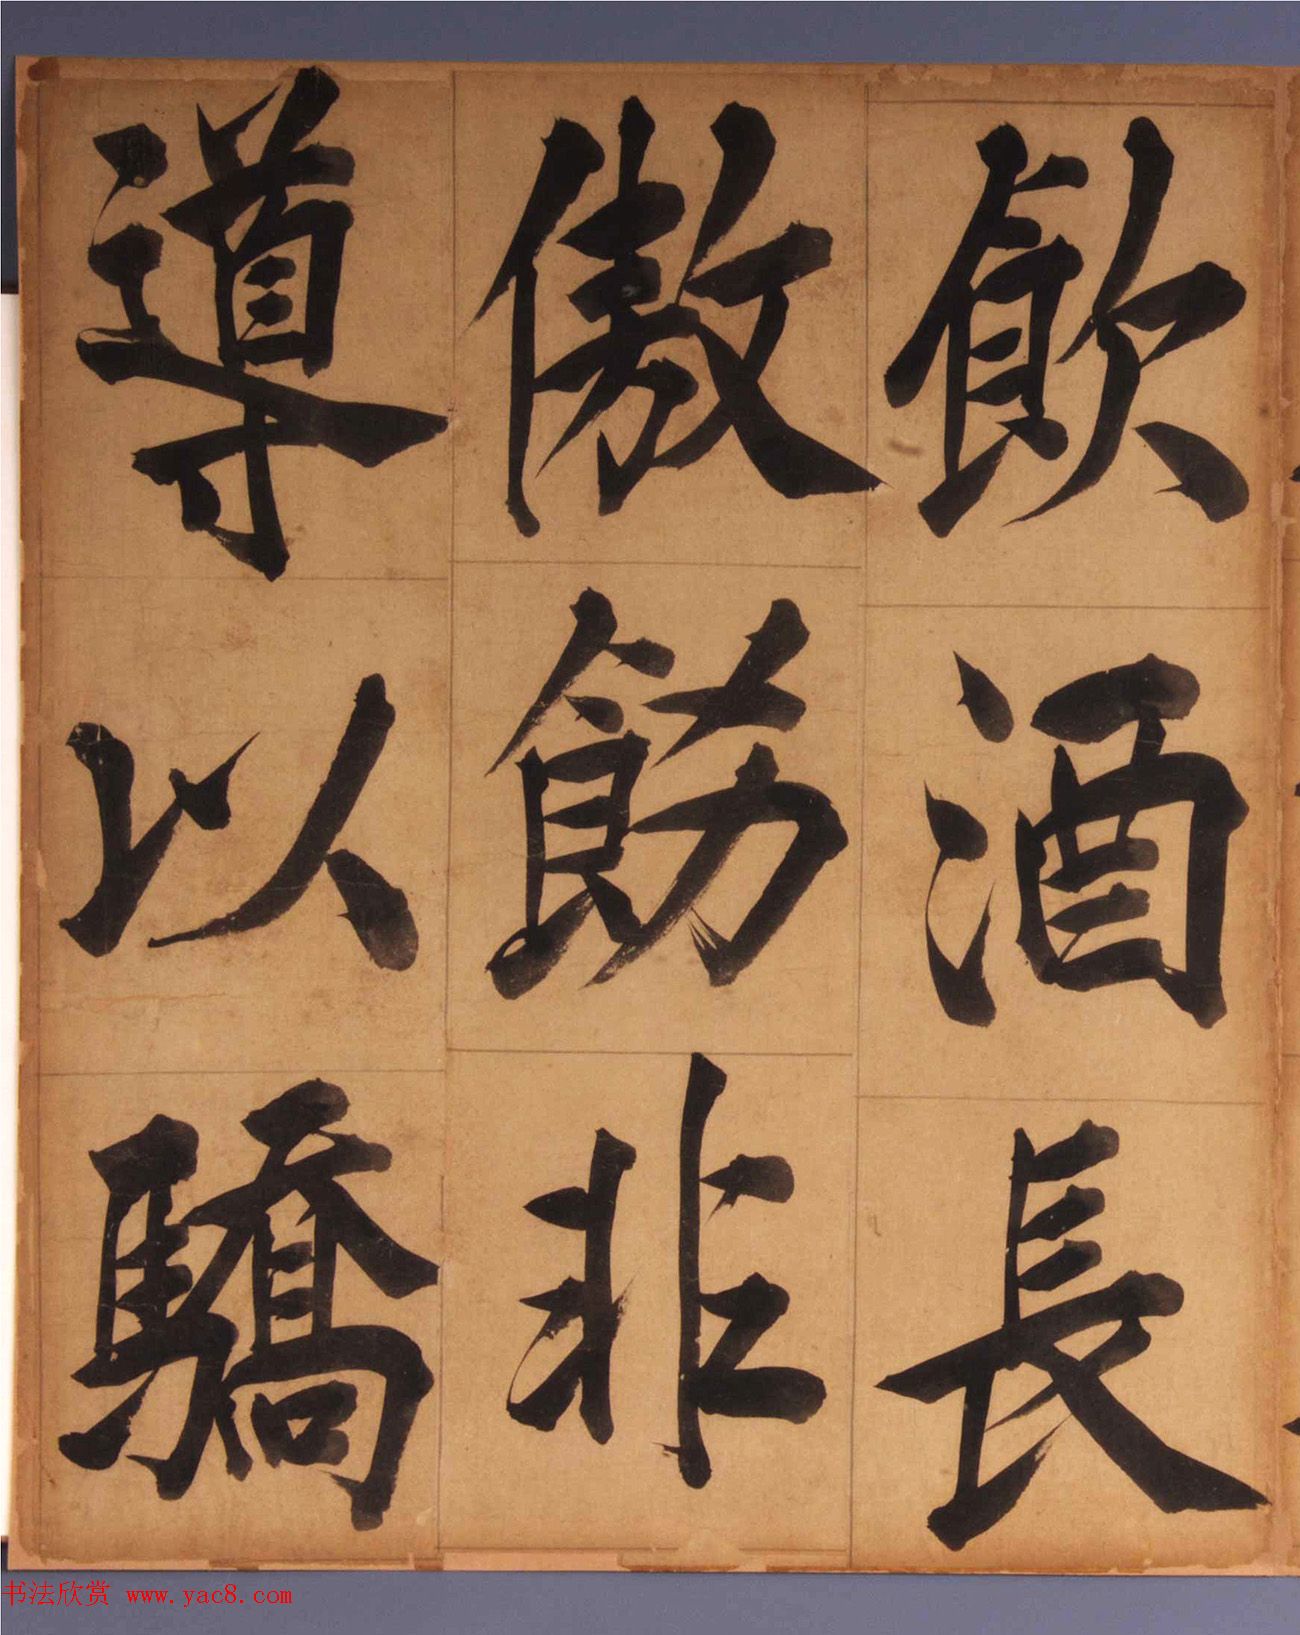 飲酒長
傲餝非
導以驕
书法欣赏 www.yac8.com